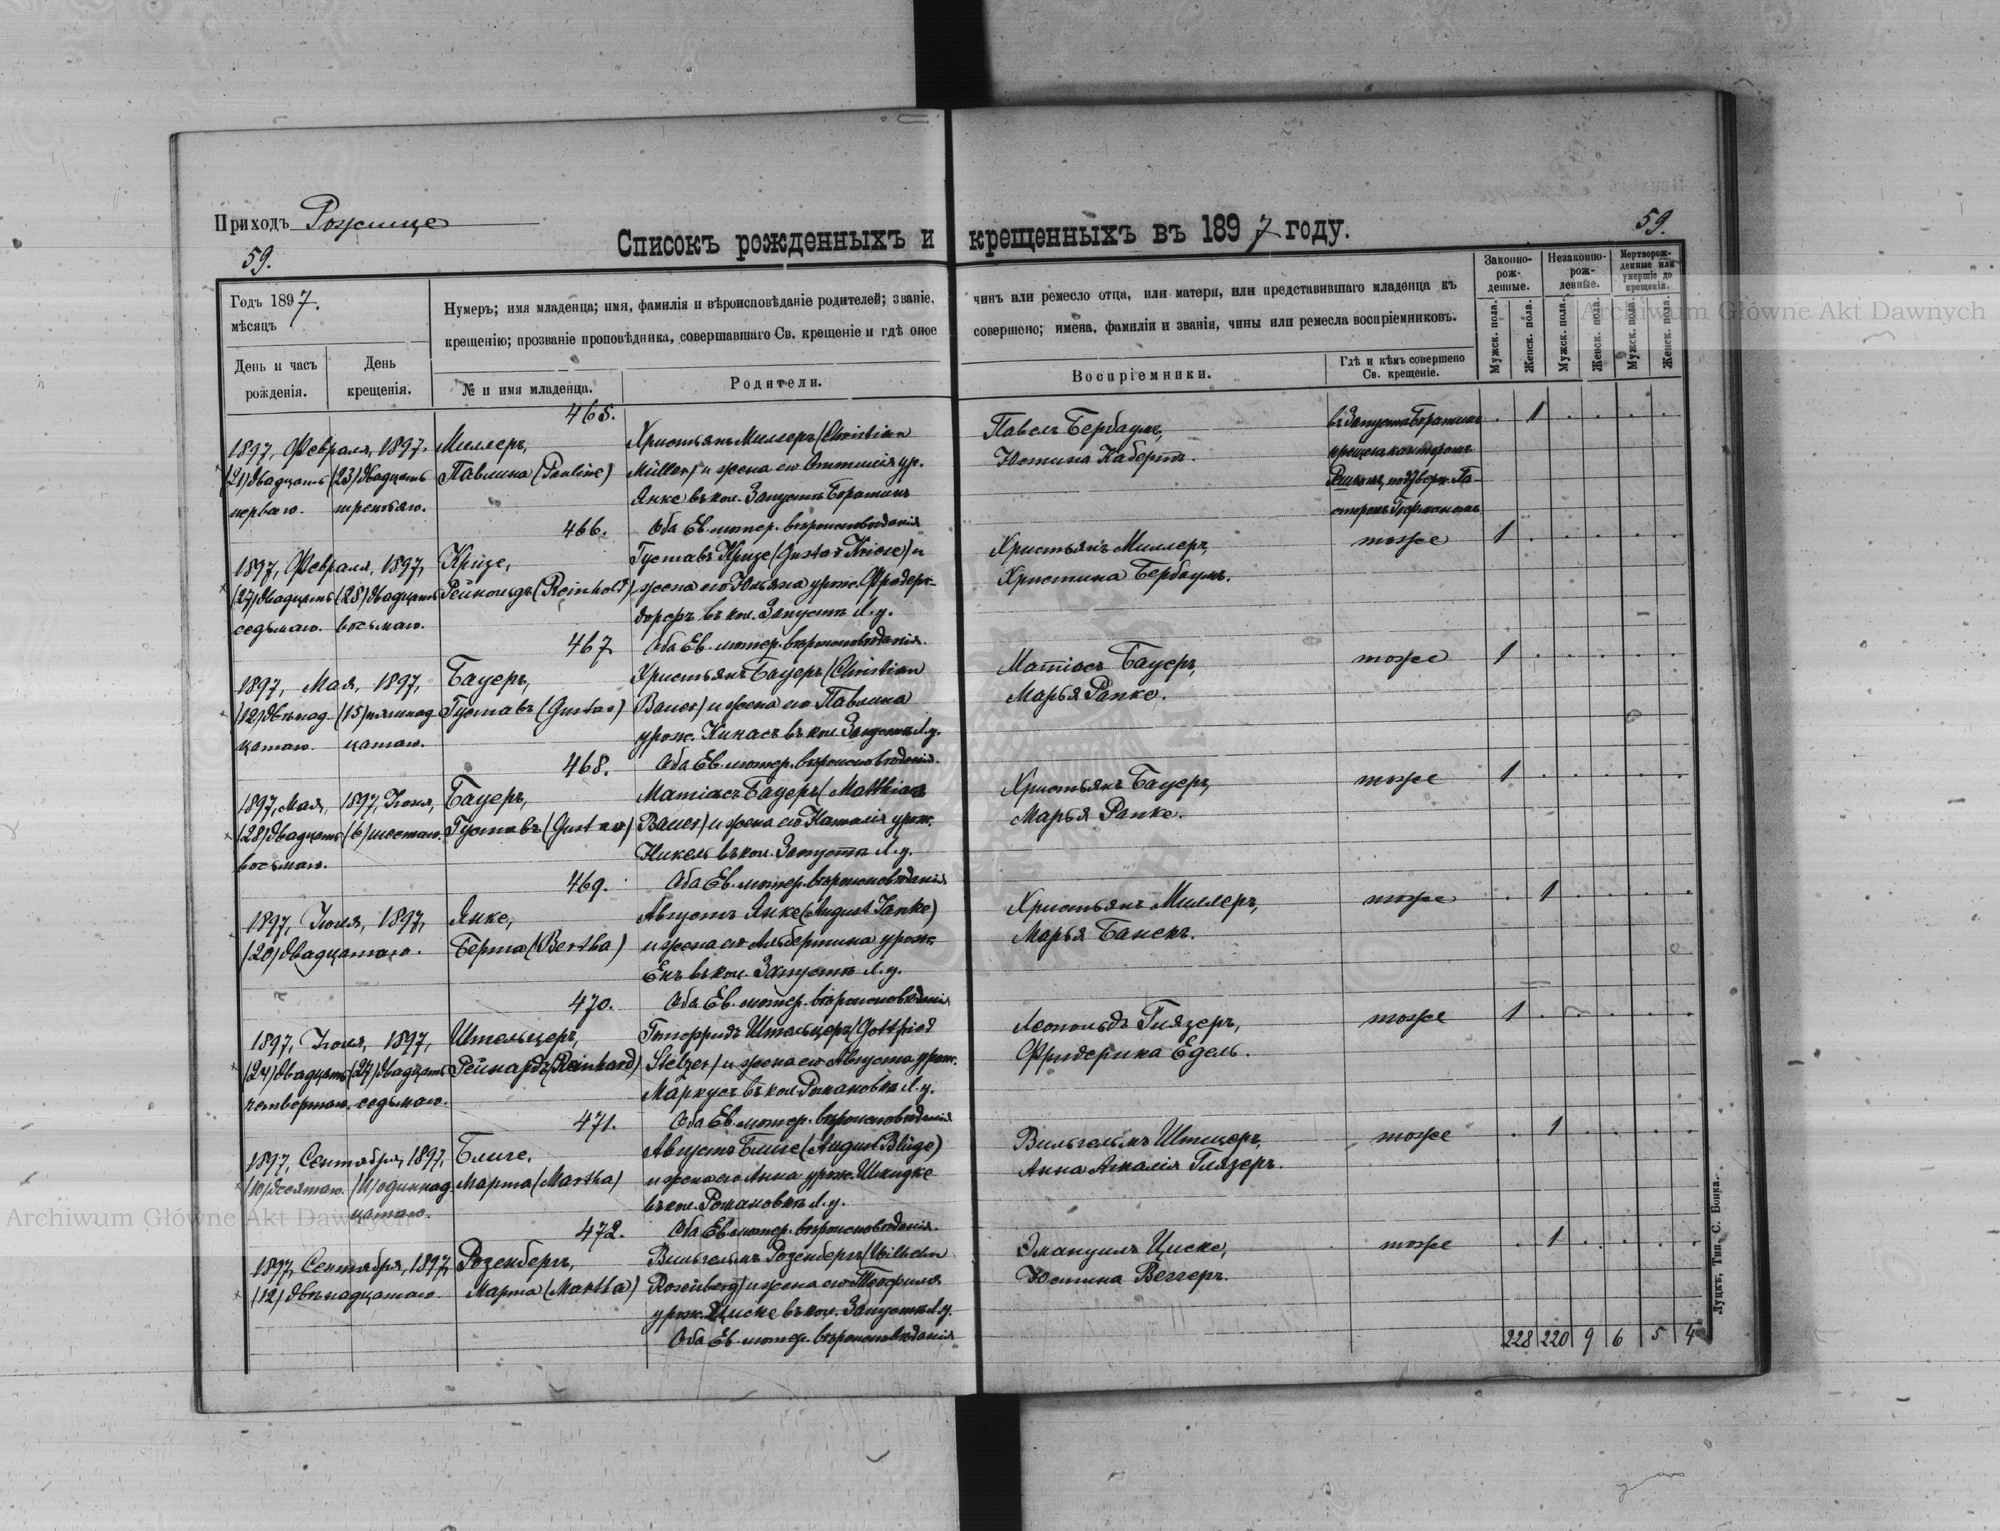 Приходъ Рожище
59.
Списокъ рожденныхъ и крещенныхъ въ 1897 году.
59.
Годъ 1897.
мѣсяцъ
День и часъ рожденія.
День крещенія.
Нумеръ; имя младенца; имя, фамилія и вѣроисповѣданіе родителей; званіе, чинъ или ремесло отца, или матери, или представившаго младенца къ
крещенію; прозваніе проповѣдника, совершавшаго Св. крещеніе и гдѣ оное совершено; имена, фамиліи и званія, чины или ремесла воспріемниковъ.
№ и имя младенца.
Родители.
Воспріемники.
Гдѣ и кѣмъ совершено Св. крещеніе.
Законно-рож-денные.
Незаконно-рож-денные.
Мертворож-денные или умершіе до крещенія.
Мужск. пола.
Женск. пола.
Мужск. пола.
Женск. пола.
Мужск. пола.
Женск. пола.
465.
1897, Февраля, 1897. Миллеръ, Христьянъ Миллеръ (Christian Павелъ Бербаумъ, 1
(21) двадцать (23) двадцать Павлина (Pauline) Müller) и жена его ур. Юстина
перваго. третьяго. Янке въ кол. Запустъ Боратинъ
Оба Ев. лютер. вѣроисповѣданія
466.
1897, Февраля, 1897, Кризе, Густавъ Кризе (Gustav Kriese) и Христьянъ Миллеръ, тоже 1
(27) двадцать (28) двадцать Рейнольдъ (Reinhold) жена его Юльяна урож. Христина Бербаумъ.
седьмаго. восьмаго. въ кол. Запустъ Л. у.
Оба Ев. лютер. вѣроисповѣданія.
467.
1897, Мая, 1897, Бауеръ, Христьянъ Бауеръ (Christian Матіасъ Бауеръ, тоже 1
(12) двѣнад- (15) пятнад- Густавъ (Gustav) Bauer) и жена его Павлина Марья Рапке.
цатаго. цатаго. урож. въ кол. Запустъ Л. у.
Оба Ев. лютер. вѣроисповѣданія.
468.
1897, Мая, 1897, Іюня, Бауеръ, Матіасъ Бауеръ (Mathias Христьянъ Бауеръ, тоже 1
(28) двадцать (6) шестаго. Густавъ (Gustav) Bauer) и жена его Наталія урож. Марья Рапке.
восьмаго. Никель въ кол. Запустъ Л. у.
Оба Ев. лютер. вѣроисповѣданія
469.
1897, Іюля, 1897, Янке, Августъ Янке (August Janke) Христьянъ Миллеръ, тоже 1
(20) двадцатаго. Берта (Bertha) и жена его Альбертина урож. Марья
въ кол. Запустъ Л. у.
Оба Ев. лютер. вѣроисповѣданія
470.
1897, Іюля, 1897, Штельцеръ, Готфридъ Штельцеръ (Gottfried Леопольдъ Глязеръ, тоже 1
(24) двадцать (27) двадцать Рейнардъ (Reinhard) Stelzer) и жена его Августа урож. Фридерика Едель.
четвертаго. седьмаго. Маркусъ въ кол. Романовка Л. у.
Оба Ев. лютер. вѣроисповѣданія
471.
1897, Сентября, 1897, Блиге, Августъ Блиге (August Blüge) Вильгельмъ тоже 1
(10) десятаго. (11) одиннад- Марта (Martha) и жена его Анна урож. Шмидке Анна Амалія Глязеръ.
цатаго. въ кол. Романовка Л. у.
Оба Ев. лютер. вѣроисповѣданія.
472.
1897, Сентября, 1897, Розенбергъ, Вильгельмъ Розенбергъ (Wilhelm Эмануилъ Циске, тоже 1
(12) двѣнадцатаго. Марта (Martha) Rosenberg) и жена его Теофиля Юстина Веггеръ.
урож. Циске въ кол. Запустъ Л. у.
Оба Ев. лютер. вѣроисповѣданія
228 220 9 6 5 4
Луцкъ, Тип. С. Бонка.
Archiwum Główne Akt Dawnych
Archiwum Główne Akt Dawnych